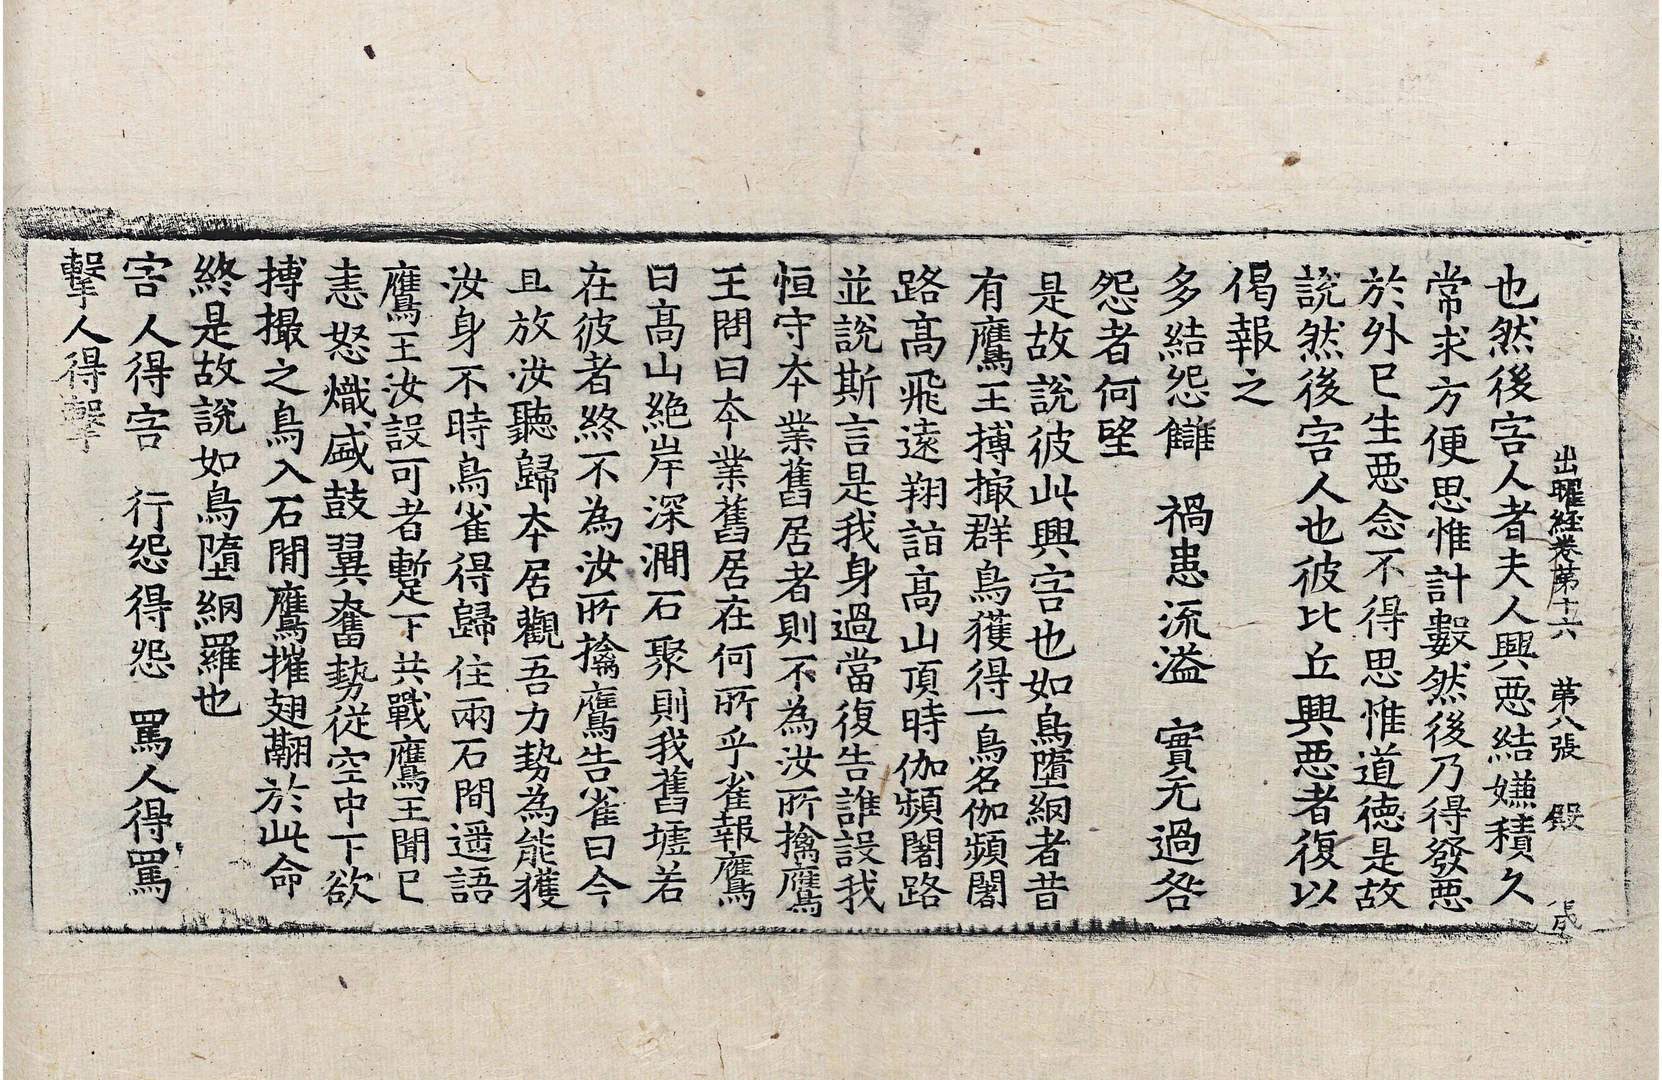 出曜經卷第十六 第八張 㲉
也然後害人者夫人興惡結嫌積久
常求方便思惟計數然後乃得發惡
於外已生惡念不得思惟道德是故
說然後害人也彼比丘興惡者復以
偈報之
多結怨讎 禍患流溢 實无過咎
怨者何望
是故說彼此興害也如鳥墮網者昔
有鷹王搏撮群鳥獲得一鳥名伽頻闍
路高飛遠翔詣高山頂時伽頻闍路
並說斯言是我身過當復告誰設我
恒守本業舊居者則不為汝所擒鷹
王問曰本業舊居在何所乎雀報鷹
曰高山絶岸深澗石聚則我舊墟若
在彼者終不為汝所擒鷹告雀曰今
且放汝聽歸本居觀吾力勢為能獲
汝身不時鳥雀得歸住兩石間遥語
鷹王汝設可者蹔下共戰鷹王聞已
恚怒熾盛鼓翼奮勢從空中下欲
搏撮之鳥入石間鷹摧翅翮於此命
終是故說如鳥墮網羅也
害人得害 行怨得怨 罵人得罵
擊人得擊